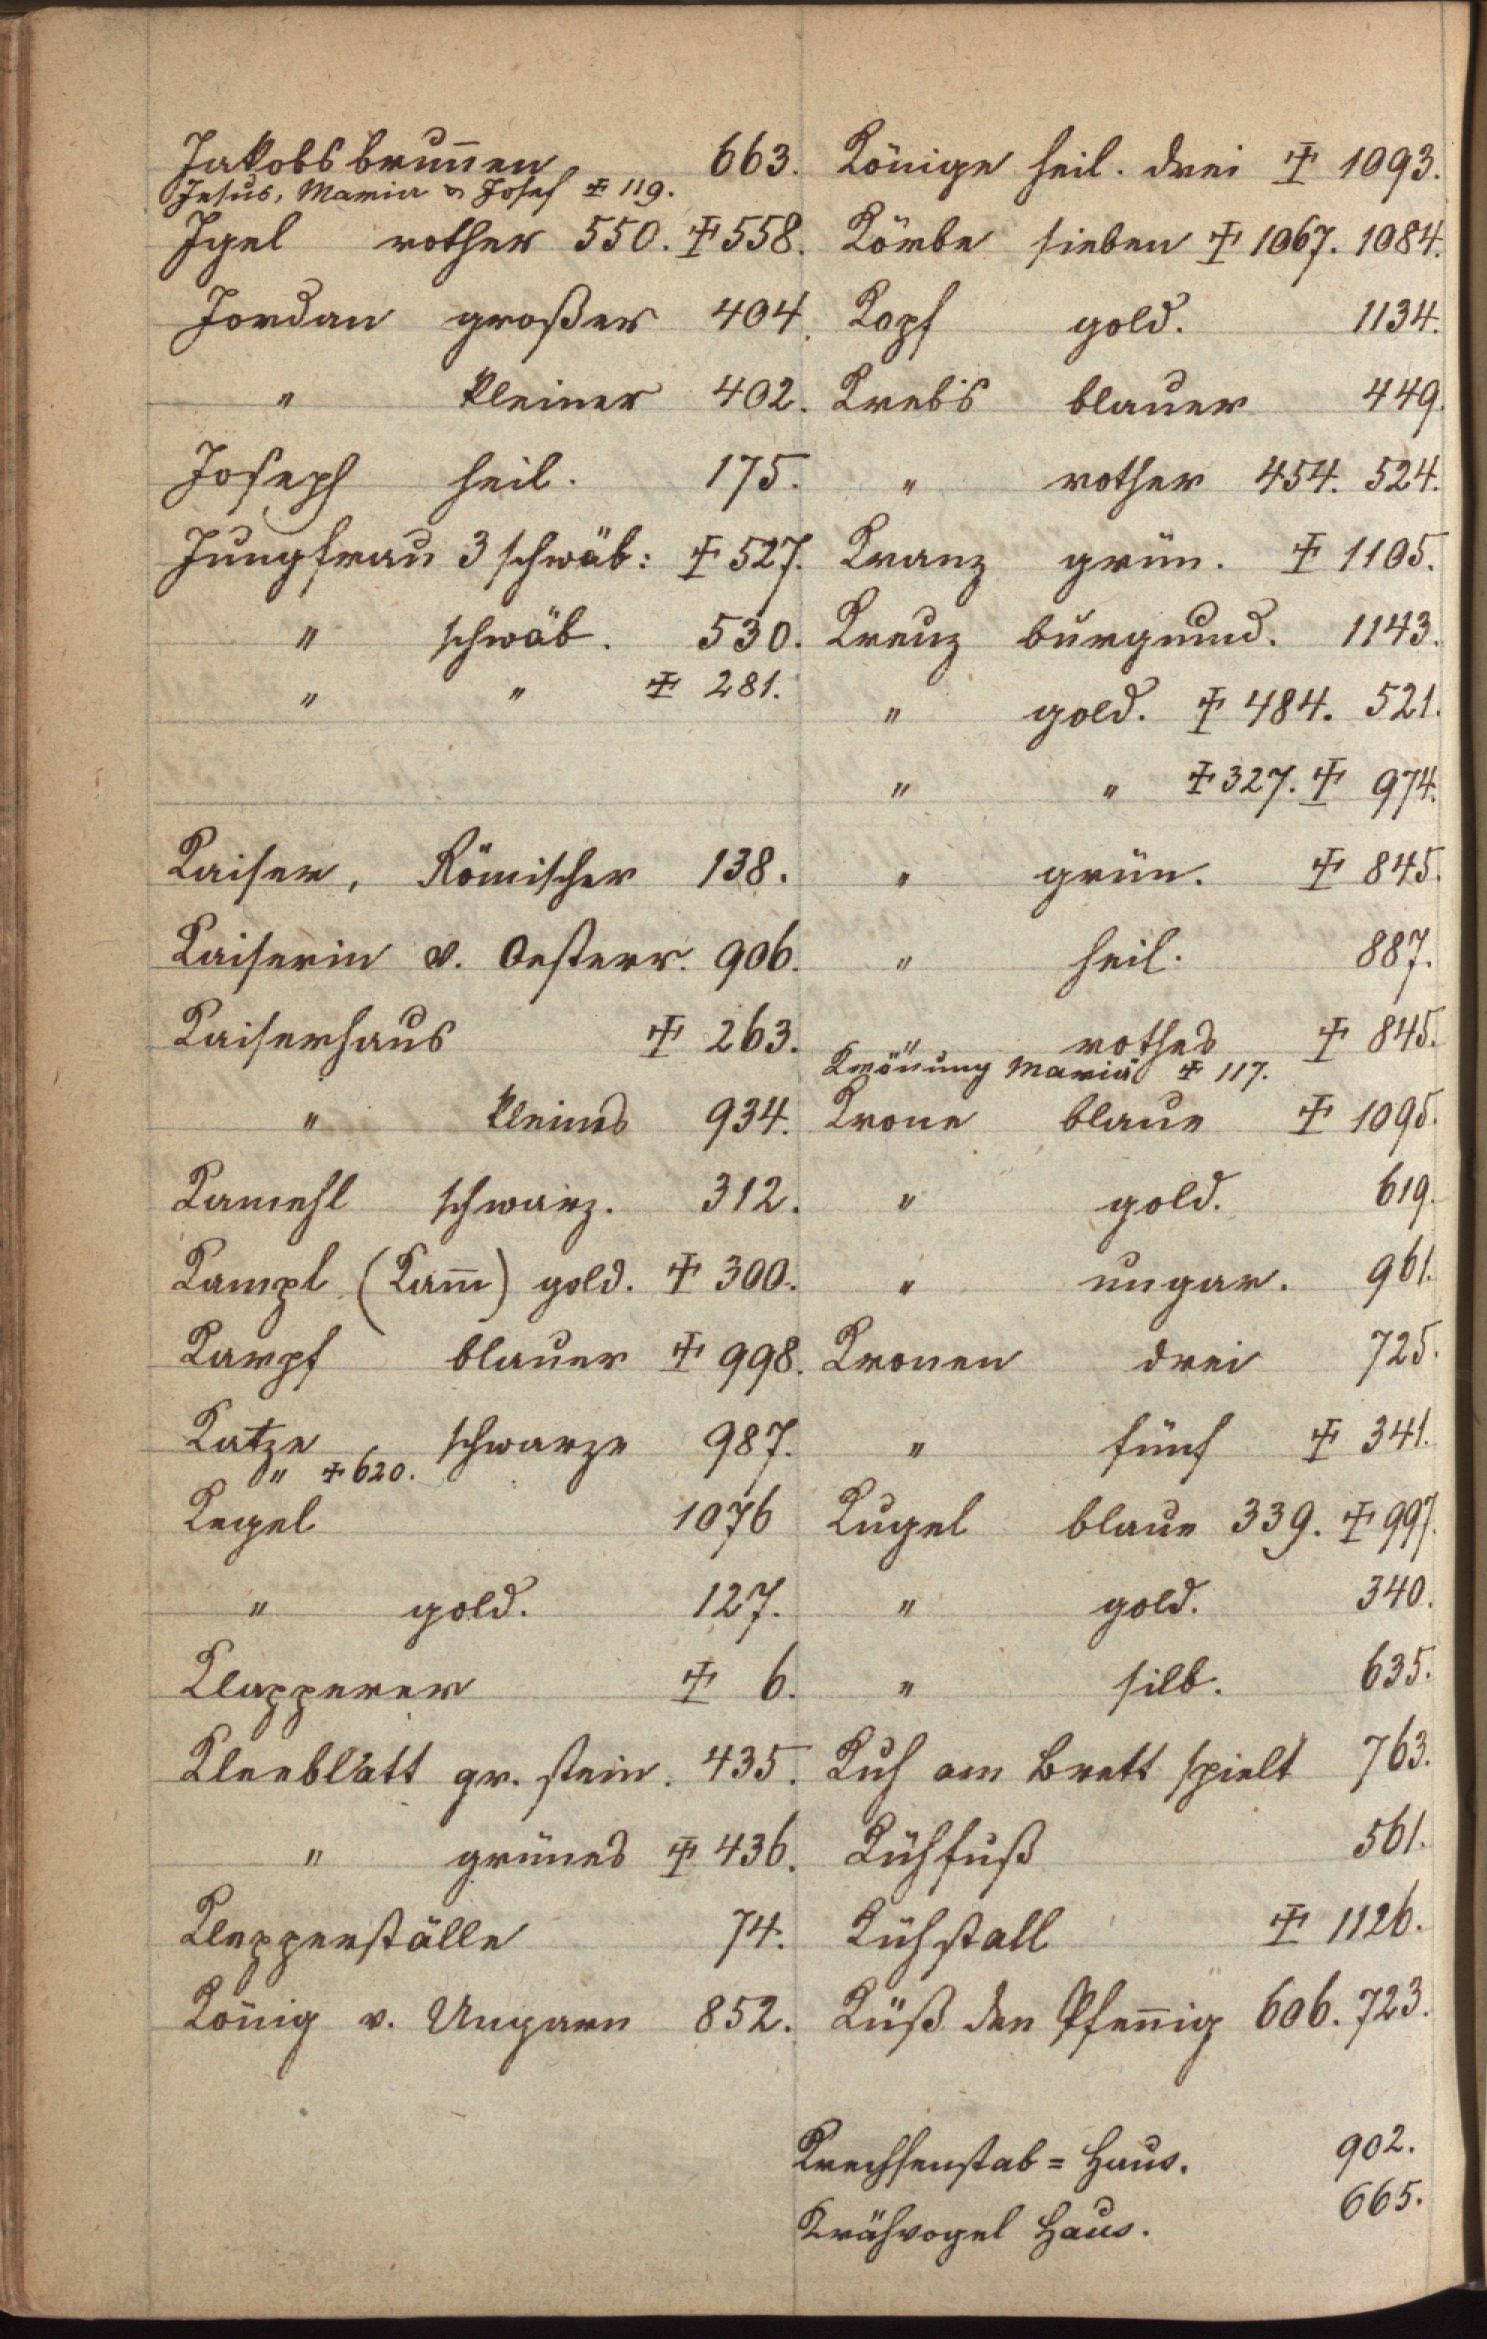 Jakobsbrun̄en 663.
Jesus, Maria & Josef ‡ 119.
Igel rother 550. ‡ 558.
Jordan großer 404.
" kleiner 402.
Joseph heil. 175.
Jungfrau 3 schwäb: ‡ 527.
" schwäb. 530.
" " ‡ 281.
Kaiser, Römischer 138.
Kaiserin v. Oesterr. 906.
Kaiserhaus ‡ 263.
" kleines 934.
Kamehl schwarz. 312.
Kampl (Kam̄) gold. ‡ 300.
Karpf blauer ‡ 998.
Katze, schwarze 987.
" ‡ 620.
Kegel 1076
" gold. 127.
Klapperer ‡ 6.
Kleeblatt gr. stein. 435.
" grünes ‡ 436.
Klepperställe 74.
König v. Ungarn 852.
Könige heil. drei ‡ 1093.
Körbe sieben ‡ 1067. 1084.
Kopf gold. 1134.
Krebs blauer 449.
" rother 454. 524.
Kranz grün. ‡ 1105.
Kreuz burgund. 1143.
" gold. ‡ 484. 521.
" " ‡ 327. ‡ 974.
" grün. ‡ 845.
" heil. 887.
" rothes ‡ 845.
Krönung Mariä ‡ 117.
Krone blaue ‡ 1095.
" gold. 619.
" ungar. 961.
Kronen drei 725.
" fünf ‡ 341.
Kugel blaue 339. ‡ 997.
" gold. 340.
" silb. 635.
Kuh am Brett spielt 763.
Kühfuß 561.
Kühstall ‡ 1126.
Küß den Pfen̄ig 606. 723.
Krechsenstab = Haus. 902.
Krähvogel Haus. 665.